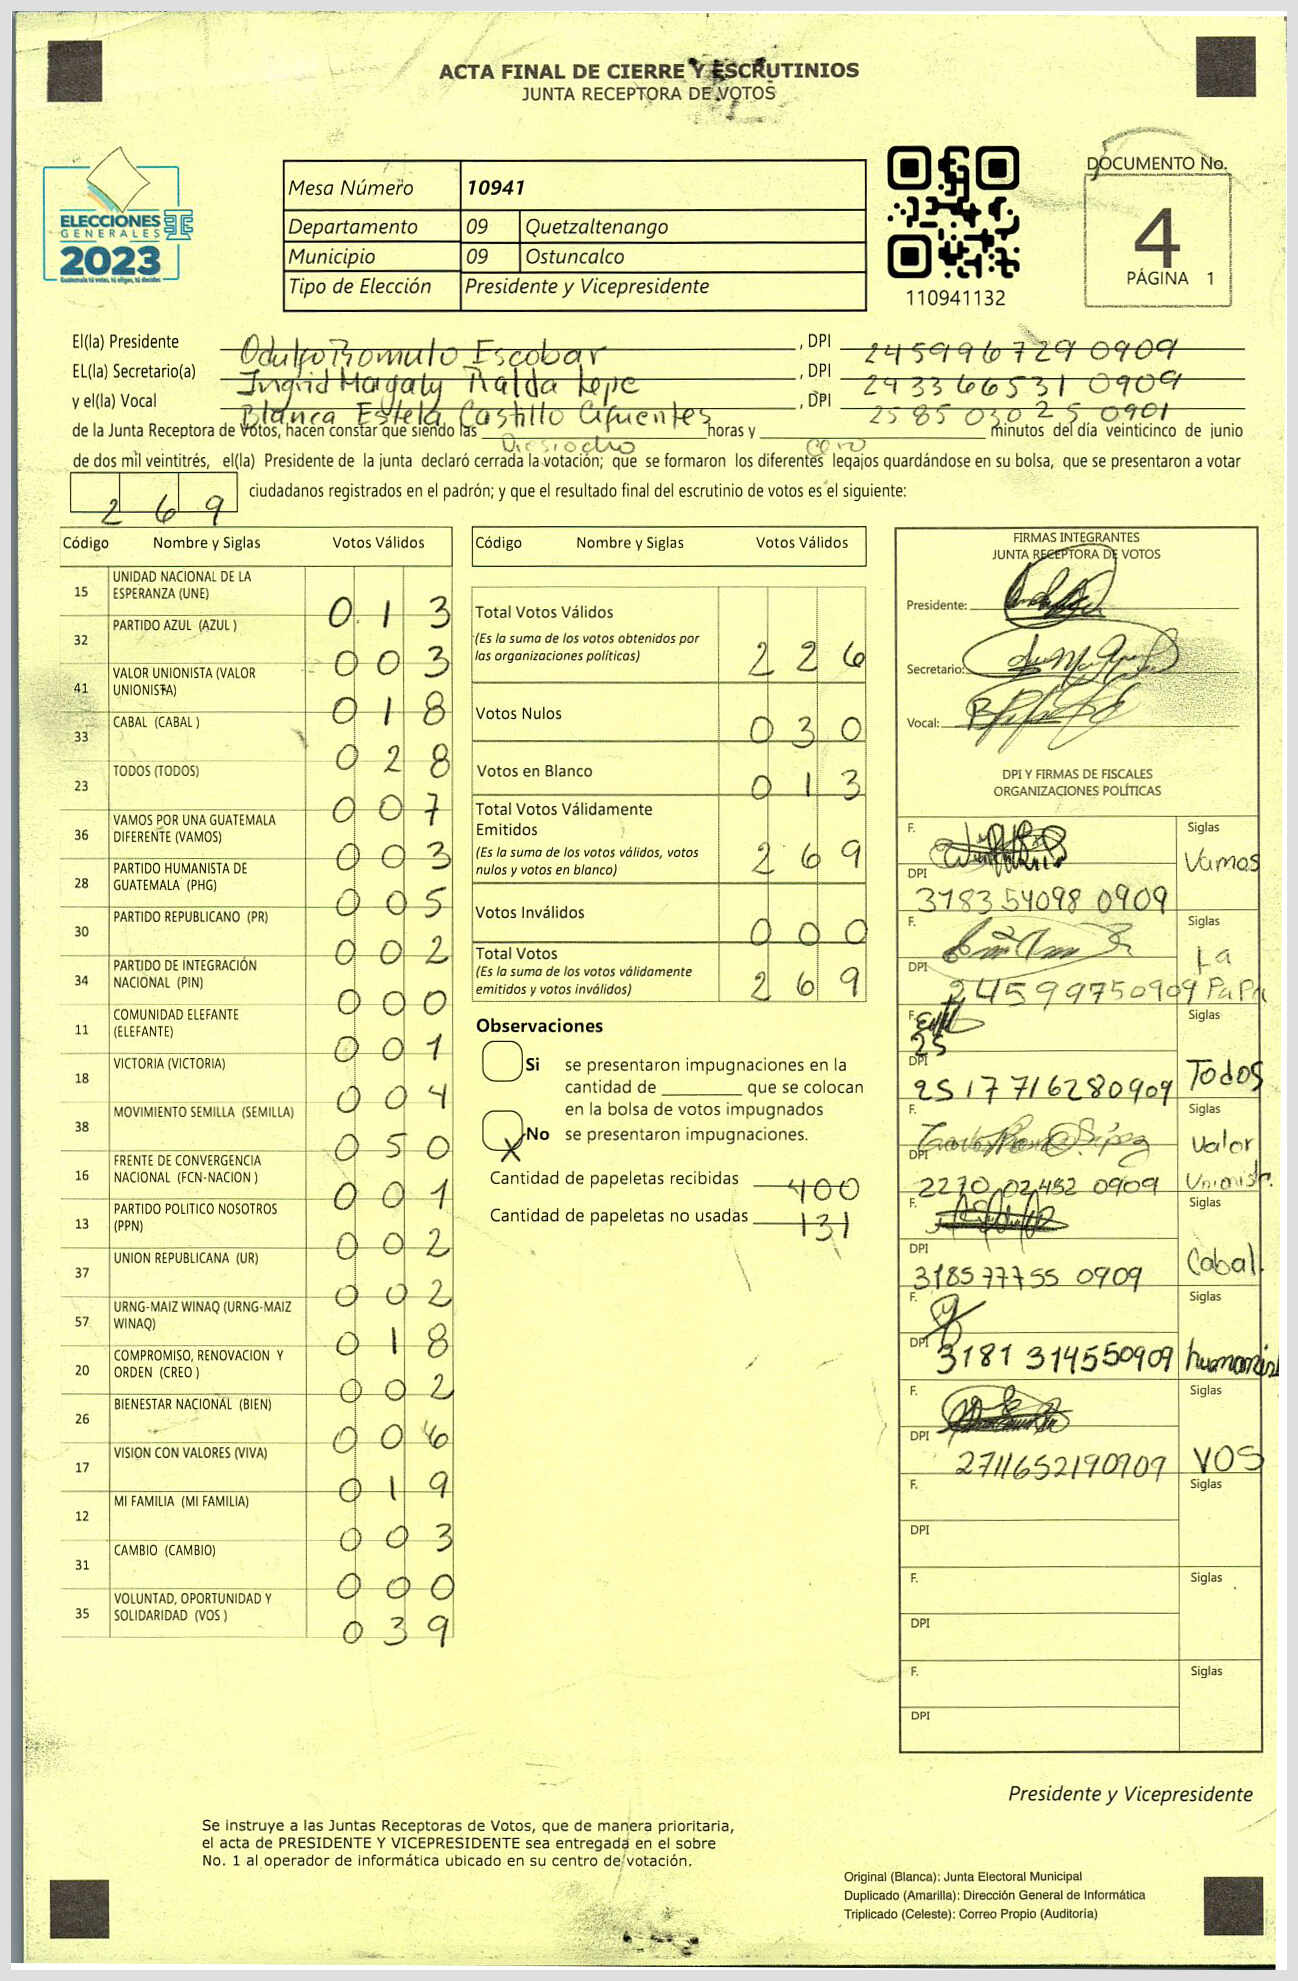 ACTA FINAL DE CIERRE Y ESCRUTINIOS
JUNTA RECEPTORA DE VOTOS
ELECCIONES
GENERALES
2023
Guatemala tú votas, tú eliges, tú decides
Mesa Número 10941
Departamento 09 Quetzaltenango
Municipio 09 Ostuncalco
Tipo de Elección Presidente y Vicepresidente
110941132
DOCUMENTO No.
4
PÁGINA 1
El(la) Presidente Odulfo Romulo Escobar, DPI 245996729 0909
EL(la) Secretario(a) Ingrid Magaly Ralda Lepe, DPI 243366531 0909
y el(la) Vocal Blanca Estela Castillo Cifuentes, DPI 2585 030 25 0901
de la Junta Receptora de Votos, hacen constar que siendo las Diesiocho horas y cero minutos del día veinticinco de junio
de dos mil veintitrés, el(la) Presidente de la junta declaró cerrada la votación; que se formaron los diferentes legajos guardándose en su bolsa, que se presentaron a votar
269 ciudadanos registrados en el padrón; y que el resultado final del escrutinio de votos es el siguiente:
Código Nombre y Siglas Votos Válidos
15 UNIDAD NACIONAL DE LA ESPERANZA (UNE) 013
32 PARTIDO AZUL (AZUL ) 003
41 VALOR UNIONISTA (VALOR UNIONISTA) 018
33 CABAL (CABAL ) 028
23 TODOS (TODOS) 007
36 VAMOS POR UNA GUATEMALA DIFERENTE (VAMOS) 003
28 PARTIDO HUMANISTA DE GUATEMALA (PHG) 005
30 PARTIDO REPUBLICANO (PR) 002
34 PARTIDO DE INTEGRACIÓN NACIONAL (PIN) 000
11 COMUNIDAD ELEFANTE (ELEFANTE) 001
18 VICTORIA (VICTORIA) 004
38 MOVIMIENTO SEMILLA (SEMILLA) 050
16 FRENTE DE CONVERGENCIA NACIONAL (FCN-NACION ) 001
13 PARTIDO POLITICO NOSOTROS (PPN) 002
37 UNION REPUBLICANA (UR) 002
57 URNG-MAIZ WINAQ (URNG-MAIZ WINAQ) 018
20 COMPROMISO, RENOVACION Y ORDEN (CREO ) 002
26 BIENESTAR NACIONAL (BIEN) 006
17 VISION CON VALORES (VIVA) 019
12 MI FAMILIA (MI FAMILIA) 003
31 CAMBIO (CAMBIO) 000
35 VOLUNTAD, OPORTUNIDAD Y SOLIDARIDAD (VOS ) 039
Código Nombre y Siglas Votos Válidos
Total Votos Válidos 226
(Es la suma de los votos obtenidos por
las organizaciones políticas)
Votos Nulos 030
Votos en Blanco 013
Total Votos Válidamente
Emitidos 269
(Es la suma de los votos válidos, votos
nulos y votos en blanco)
Votos Inválidos 000
Total Votos 269
(Es la suma de los votos válidamente
emitidos y votos inválidos)
Observaciones
Si se presentaron impugnaciones en la
cantidad de ________ que se colocan
en la bolsa de votos impugnados
X No se presentaron impugnaciones.
Cantidad de papeletas recibidas 400
Cantidad de papeletas no usadas 131
FIRMAS INTEGRANTES
JUNTA RECEPTORA DE VOTOS
Presidente:
Secretario:
Vocal:
DPI Y FIRMAS DE FISCALES
ORGANIZACIONES POLÍTICAS
F. Siglas Vamos
DPI 3183 54098 0909
F. Siglas La PaPa
DPI 24599750909
F. Siglas Todos
25
DPI 2517716280909
F. Siglas Valor Unionist.
DPI 2270 02452 0909
F. Siglas Cabal.
DPI 318577755 0909
F. Siglas humanis
DPI 3181 314550909
F. Siglas VOS
DPI 2711652190909
F. Siglas
DPI
F. Siglas
DPI
F. Siglas
DPI
Presidente y Vicepresidente
Se instruye a las Juntas Receptoras de Votos, que de manera prioritaria,
el acta de PRESIDENTE Y VICEPRESIDENTE sea entregada en el sobre
No. 1 al operador de informática ubicado en su centro de votación.
Original (Blanca): Junta Electoral Municipal
Duplicado (Amarilla): Dirección General de Informática
Triplicado (Celeste): Correo Propio (Auditoría)